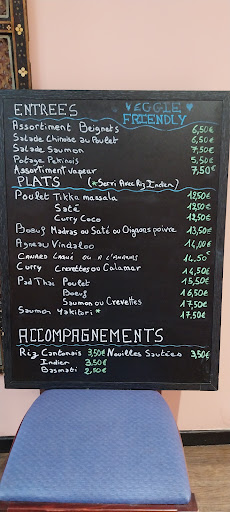 VEGGIE
ENTREES FRIENDLY
Assortiment Beignets 6,50€
Salade Chinoise au Poulet 6,50€
Salade Saumon 7,50€
Potage Pekinois 5,50€
Assortiment vapeur 7,50€
PLATS (*Servi Avec Riz Indien)
Poulet Tikka masala 12,50€
Saté 12,50€
Curry Coco 12,50€
Boeuf Madras ou Saté ou Oignons poivre 13,50€
Agneau Vindaloo 14,00€
CANARD LAQUÉ OU A L'ANANAS 14,50€
Curry Crevettes ou Calamar 14,50€
Pad Thai Poulet 15,50€
Boeuf 16,50€
Saumon ou Crevettes 17,50€
Saumon Yakitori * 17,50€
ACCOMPAGNEMENTS
Riz Cantonais 3,50€ Nouilles Sautées 3,50€
Indien 3,50€
Basmati 2,50€